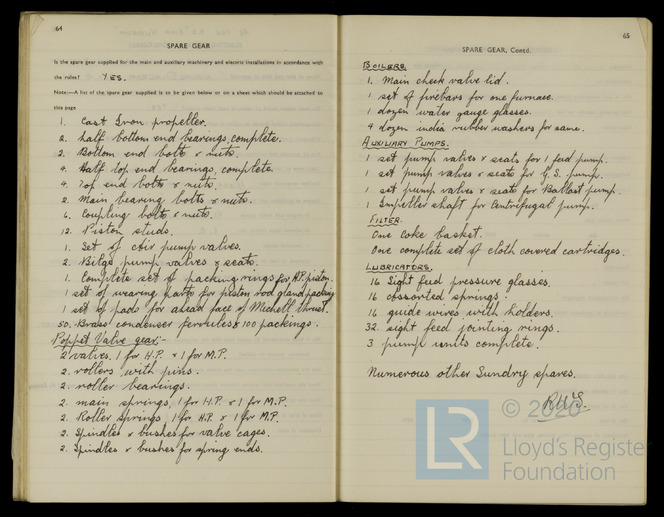 64
SPARE GEAR
Is the spare gear supplied for the main and auxiliary machinery and electric installations in accordance with
the rules? YES.
Note:—A list of the spare gear supplied is to be given below or on a sheet which should be attached to
this page
1. Cast Iron propeller.
2. half bottom end bearings, complete.
2. Bottom end bolts & nuts.
4. Half top end bearings, complete.
4. Top end bolts & nuts.
2. Main bearing bolts & nuts.
6. Coupling bolts & nuts.
12. Piston studs.
1. Set of air pump valves.
2. Bilge pump valves & seats.
1. Complete set of packing rings for H.P. piston.
1 set of wearing parts for piston rod gland packing
1 set of pads for ahead face of Michell thrust.
50. Brass condenser ferrules & 100 packings.
Poppet Valve gear:-
2 valves, 1 for H.P. & 1 for M.P.
2. rollers with pins.
2. roller bearings.
2. main springs, 1 for H.P. & 1 for M.P.
2. Roller springs, 1 for H.P. & 1 for M.P.
2. Spindles & bushes for valve cages.
2. Spindles & bushes for spring ends.
65
SPARE GEAR, Contd.
BOILERS.
1. Main check valve lid.
1 set of firebars for one furnace.
1 dozen water gauge glasses.
4 dozen india rubber washers for same.
AUXILIARY PUMPS.
1 set pump valves & seats for 1 feed pump.
1 set pump valves & seats for G.S. pump.
1 set pump valves & seats for Ballast pump.
1 Impeller shaft for Centrifugal pump.
FILTER.
One Coke basket.
One complete set of cloth covered cartridges.
LUBRICATORS.
16 Sight feed pressure glasses.
16 assorted springs.
16 guide wires with holders.
32. sight feed jointing rings.
3 pump units complete.
Numerous other Sundry spares.
© 2020
LR
Lloyd's Register
Foundation